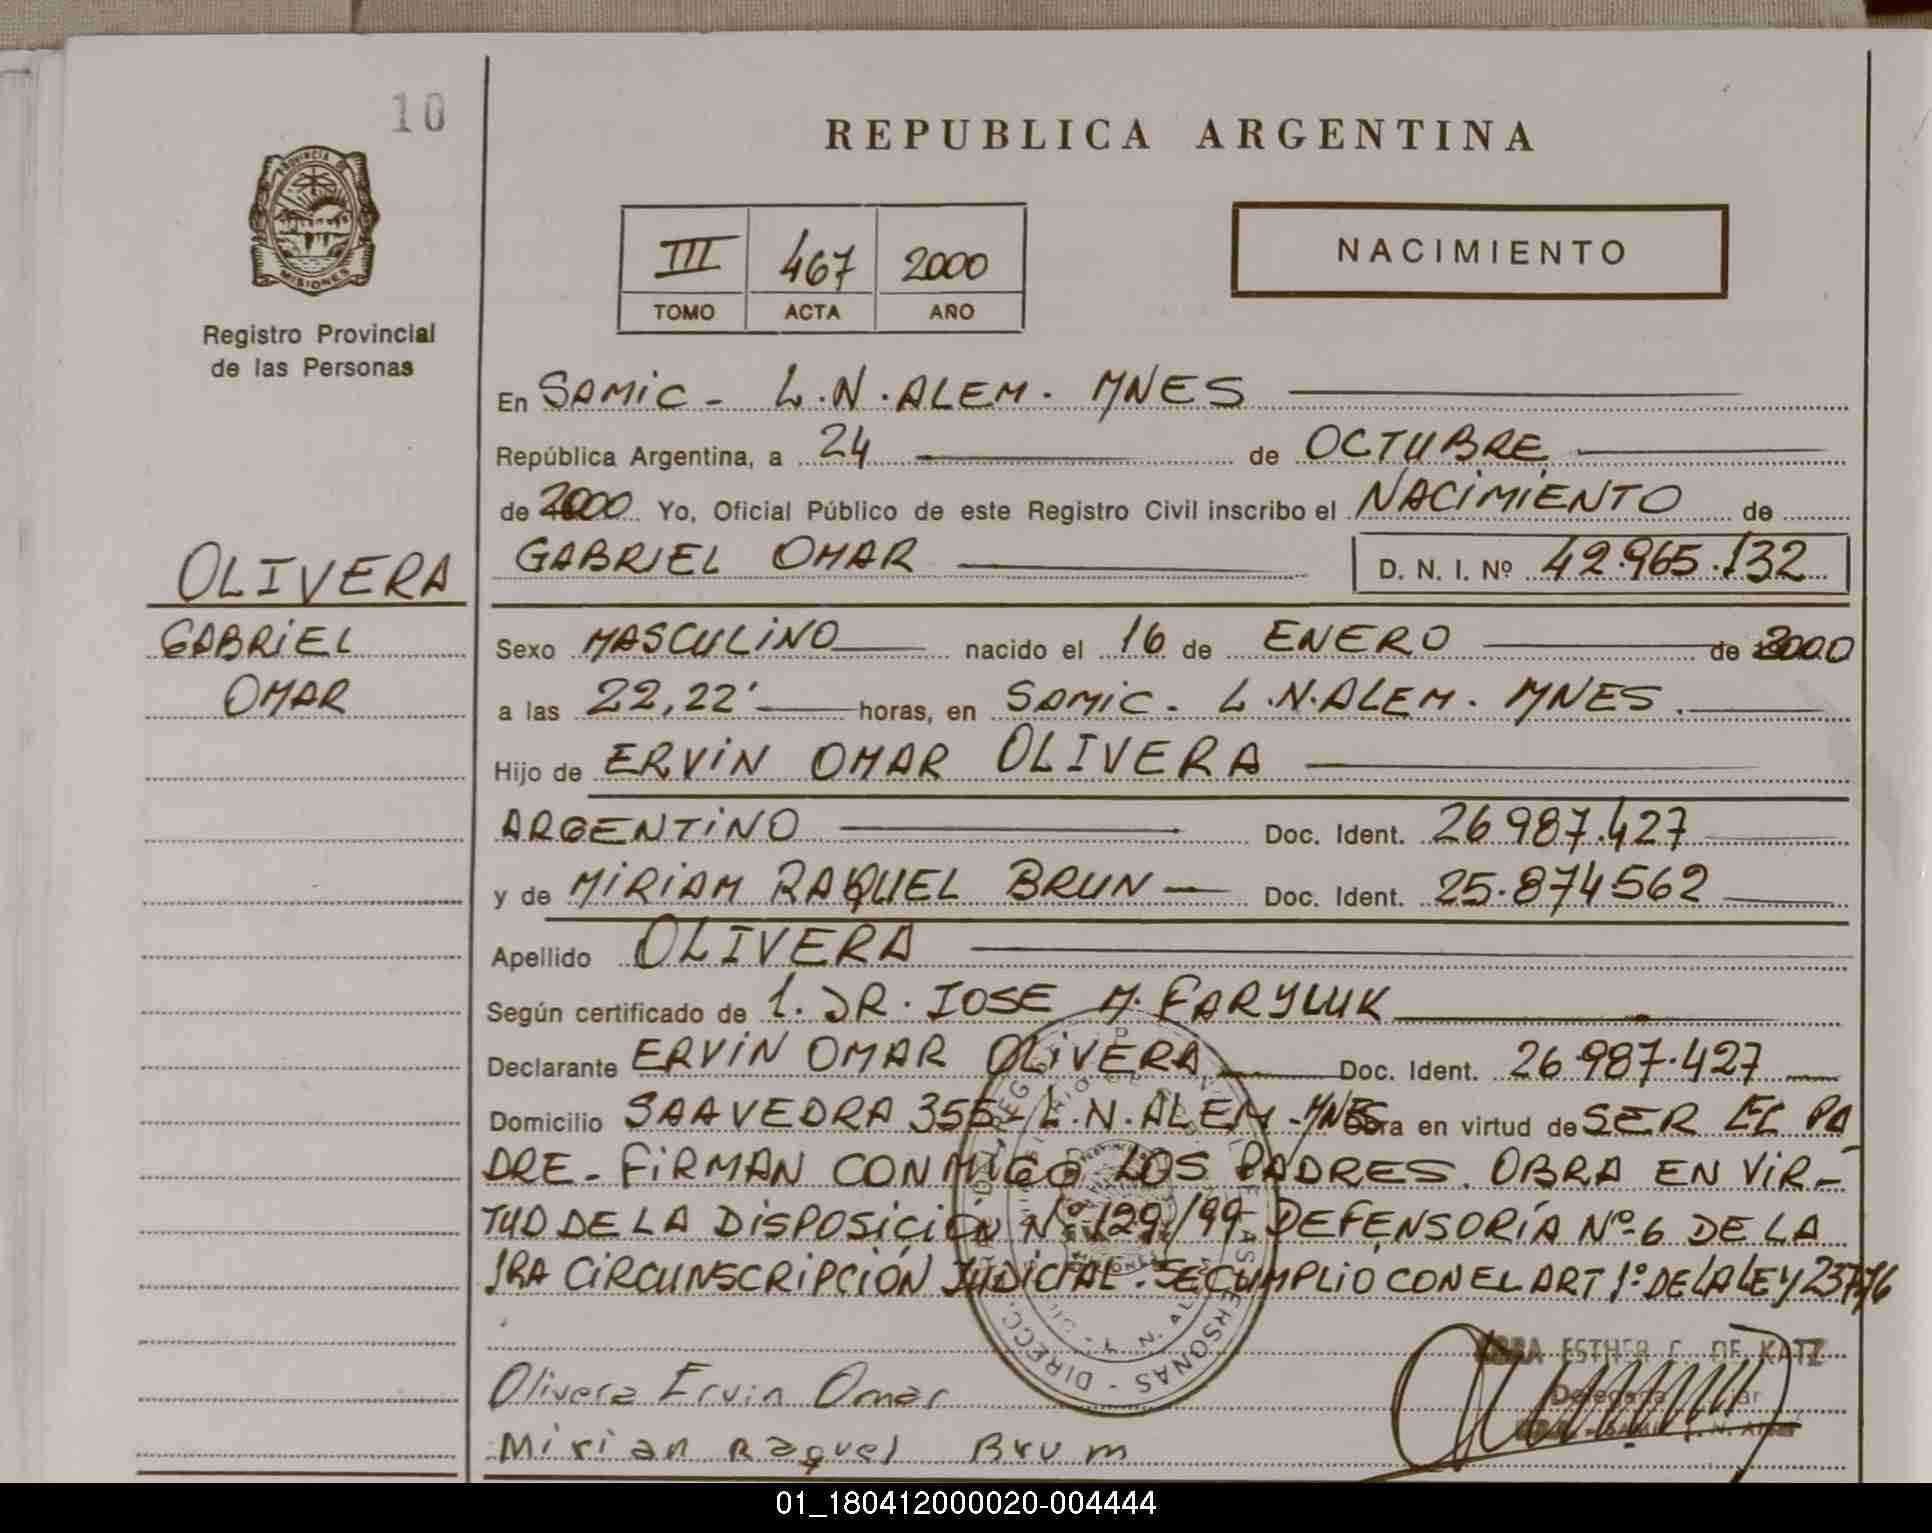 10
REPUBLICA ARGENTINA
PROVINCIA DE
MISIONES
Registro Provincial
de las Personas
III 467 2000
TOMO ACTA AÑO
NACIMIENTO
En SAMIC - L.N.ALEM. MNES
República Argentina, a 24 de OCTUBRE
de 2000 Yo, Oficial Público de este Registro Civil inscribo el NACIMIENTO de
OLIVERA
GABRIEL OMAR D. N. I. Nº 42.965.132
GABRIEL
OMAR
Sexo MASCULINO nacido el 16 de ENERO de 2000
a las 22,22' horas, en SAMIC. L.N.ALEM. MNES.
Hijo de ERVIN OMAR OLIVERA
ARGENTINO Doc. Ident. 26987.427
y de MIRIAM RAQUEL BRUN Doc. Ident. 25.874562
Apellido OLIVERA
Según certificado de 1. DR. JOSE M. FARYLUK
Declarante ERVIN OMAR OLIVERA Doc. Ident. 26.987.427
Domicilio SAAVEDRA 355 - L.N.ALEM - MNES Obra en virtud de SER EL PA
DRE - FIRMAN CONMIGO LOS PADRES. OBRA EN VIR-
TUD DE LA DISPOSICIÓN Nº 129/99 DEFENSORÍA Nº 6 DE LA
1RA CIRCUNSCRIPCIÓN JUDICIAL. SE CUMPLIO CON EL ART 1º DE LA LEY
ESTHER C. DE KATZ
Delegada
Olivera Ervin Omar
Mirian Raquel Brum
01_180412000020-004444